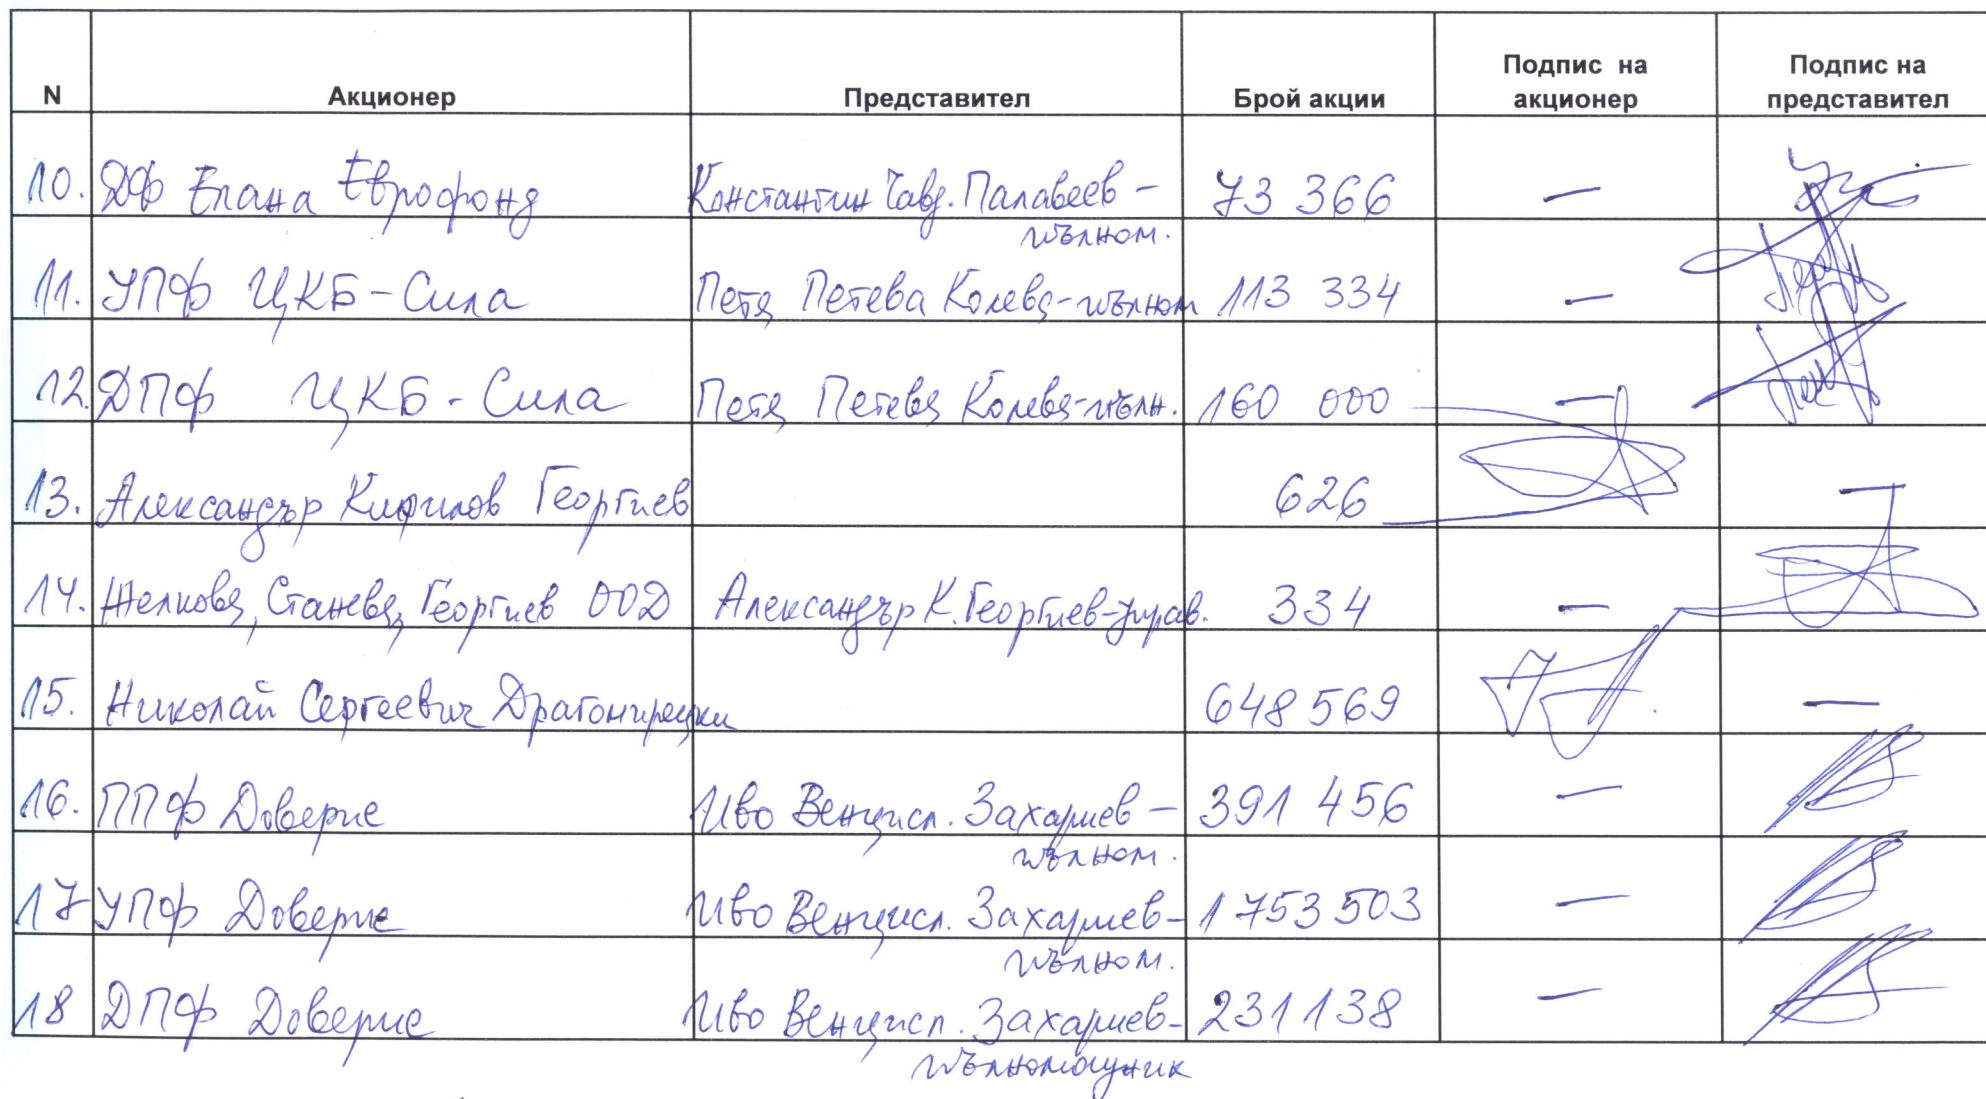 N Акционер Представител Брой акции Подпис на акционер Подпис на представител
10. ДФ Елана Еврофонд Константин Чавд. Палавеев – 73 366 —
пълном.
11. УПФ ЦКБ - Сила Петя Петева Колева - пълном 113 334 —
12. ДПФ ЦКБ - Сила Петя Петева Колева - пълн. 160 000 —
13. Александър Кирилов Георгиев 626 —
14. Желкова, Станева, Георгиев ООД Александър К. Георгиев - управ. 334 —
15. Николай Сергеевич 648 569 —
16. ППФ Доверие Иво Венцисл. Захариев – 391 456 —
пълном.
17 УПФ Доверие Иво Венцисл. Захариев - 1 753 503 —
пълном.
18 ДПФ Доверие Иво Венцисл. Захариев - 231 138 —
пълномощник